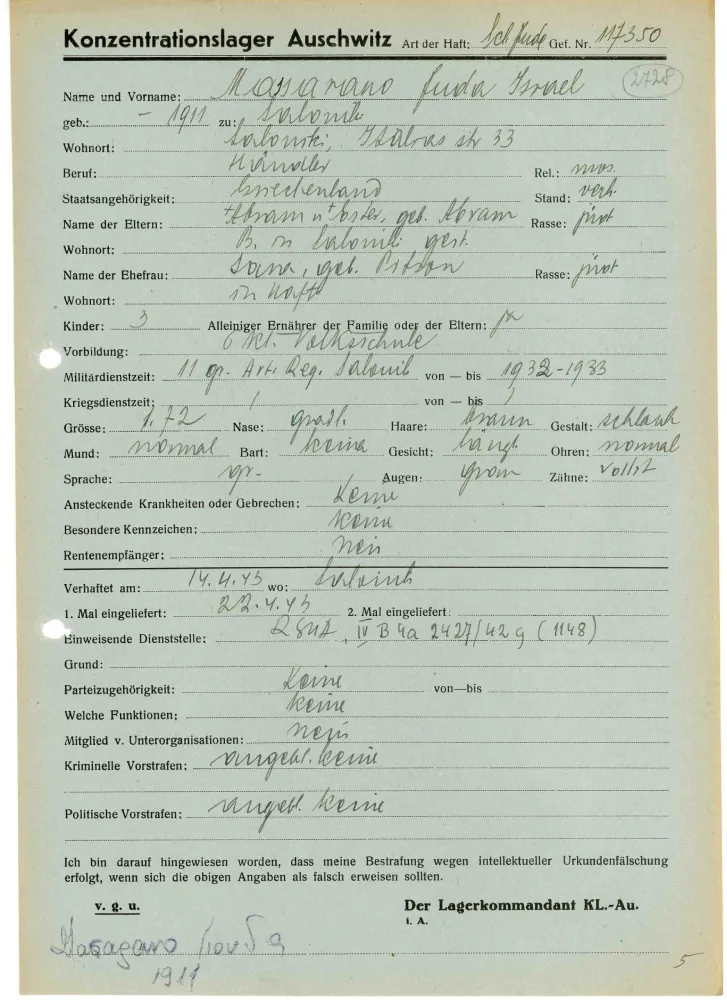 Konzentrationslager Auschwitz Art der Haft: Sch Jude Gef. Nr. 117350
2728
Name und Vorname: Massarano Juda Israel
geb.: - 1911 zu: Salonik
Wohnort: Saloniki, str 33
Beruf: Händler Rel.: mos.
Staatsangehörigkeit: Griechenland Stand: verh.
Name der Eltern: Abram u Ester, geb. Abram Rasse: jüd
Wohnort: B. in Salonik gest.
Name der Ehefrau: geb. Rasse: jüd
Wohnort: in Haft
Kinder: 3 Alleiniger Ernährer der Familie oder der Eltern: ja
Vorbildung: 6 kl. Volksschule
Militärdienstzeit: 11 gr. Art. Reg. Salonik von — bis 1932-1933
Kriegsdienstzeit: / von — bis /
Grösse: 1.72 Nase: gradl. Haare: braun Gestalt: schlank
Mund: normal Bart: keina Gesicht: längl. Ohren: normal
Sprache: gr. Augen: graun Zähne: vollst
Ansteckende Krankheiten oder Gebrechen: keine
Besondere Kennzeichen: keine
Rentenempfänger: nein
Verhaftet am: 14.4.43 wo: Salonik
1. Mal eingeliefert: 22.4.43 2. Mal eingeliefert:
Einweisende Dienststelle: RSHA, IV B 4a 2427/42 g (1148)
Grund:
Parteizugehörigkeit: keine von—bis
Welche Funktionen: keine
Mitglied v. Unterorganisationen: nein
Kriminelle Vorstrafen: angebl. keine
Politische Vorstrafen: angebl. keine
Ich bin darauf hingewiesen worden, dass meine Bestrafung wegen intellektueller Urkundenfälschung
erfolgt, wenn sich die obigen Angaben als falsch erweisen sollten.
v. g. u. Der Lagerkommandant KL.-Au.
i. A.
1911
5